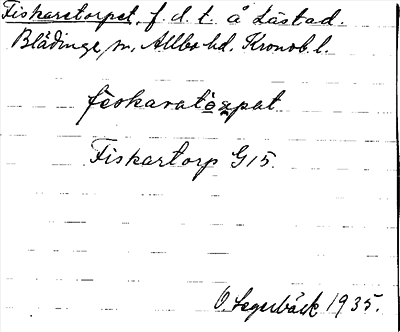 Fiskaretorpet, f. d. t. å Låstad.
Blädinge, sn, Allbo hd. Kronob. l.
Fiskartorp G15.
O. Segerbäck 1935.